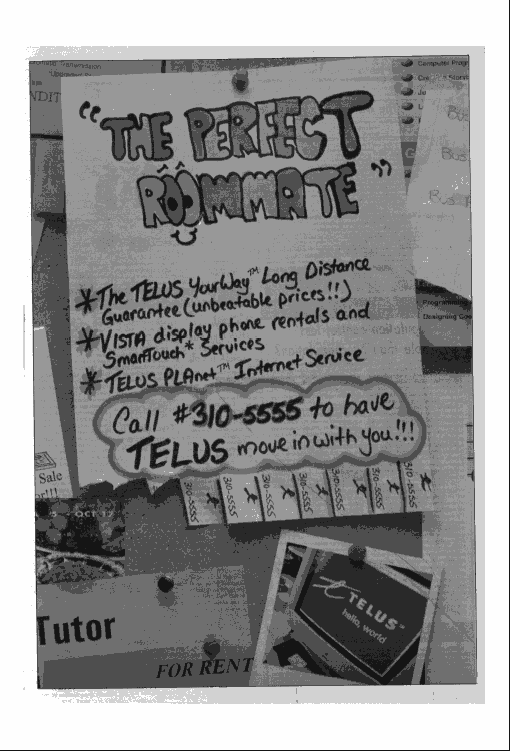 NDIT
Computer Prog
Bus
Bus
G
"THE PERFECT
ROOMMATE"
*The TELUS YourWay™ Long Distance
Guarantee (unbeatable prices!!)
*VISTA display phone rentals and
SmarTouch* Services
*TELUS PLAnet™ Internet Service
Call #310-5555 to have
TELUS move in with you!!!
Programming
Designing
Sale
or!!!
310-5555
310-5555
310-5555
310-5555
310-5555
310-5555
310-5555
OCT 12
TELUS™
hello, world
Tutor
FOR RENT